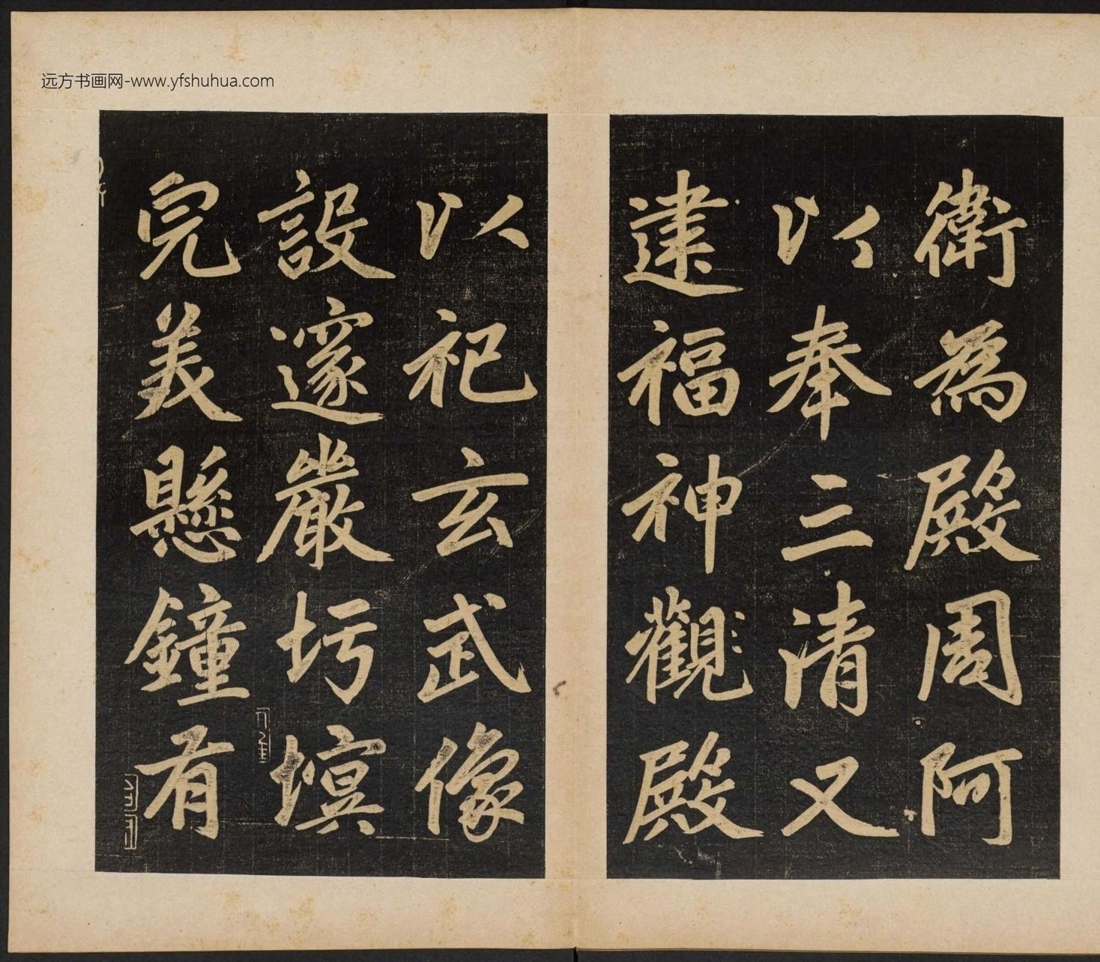 远方书画网-www.yfshuhua.com
衛為殿周阿
以奉三清又
建福神觀殿
以祀玄武像
設邃嚴圬塓
完美懸鐘有